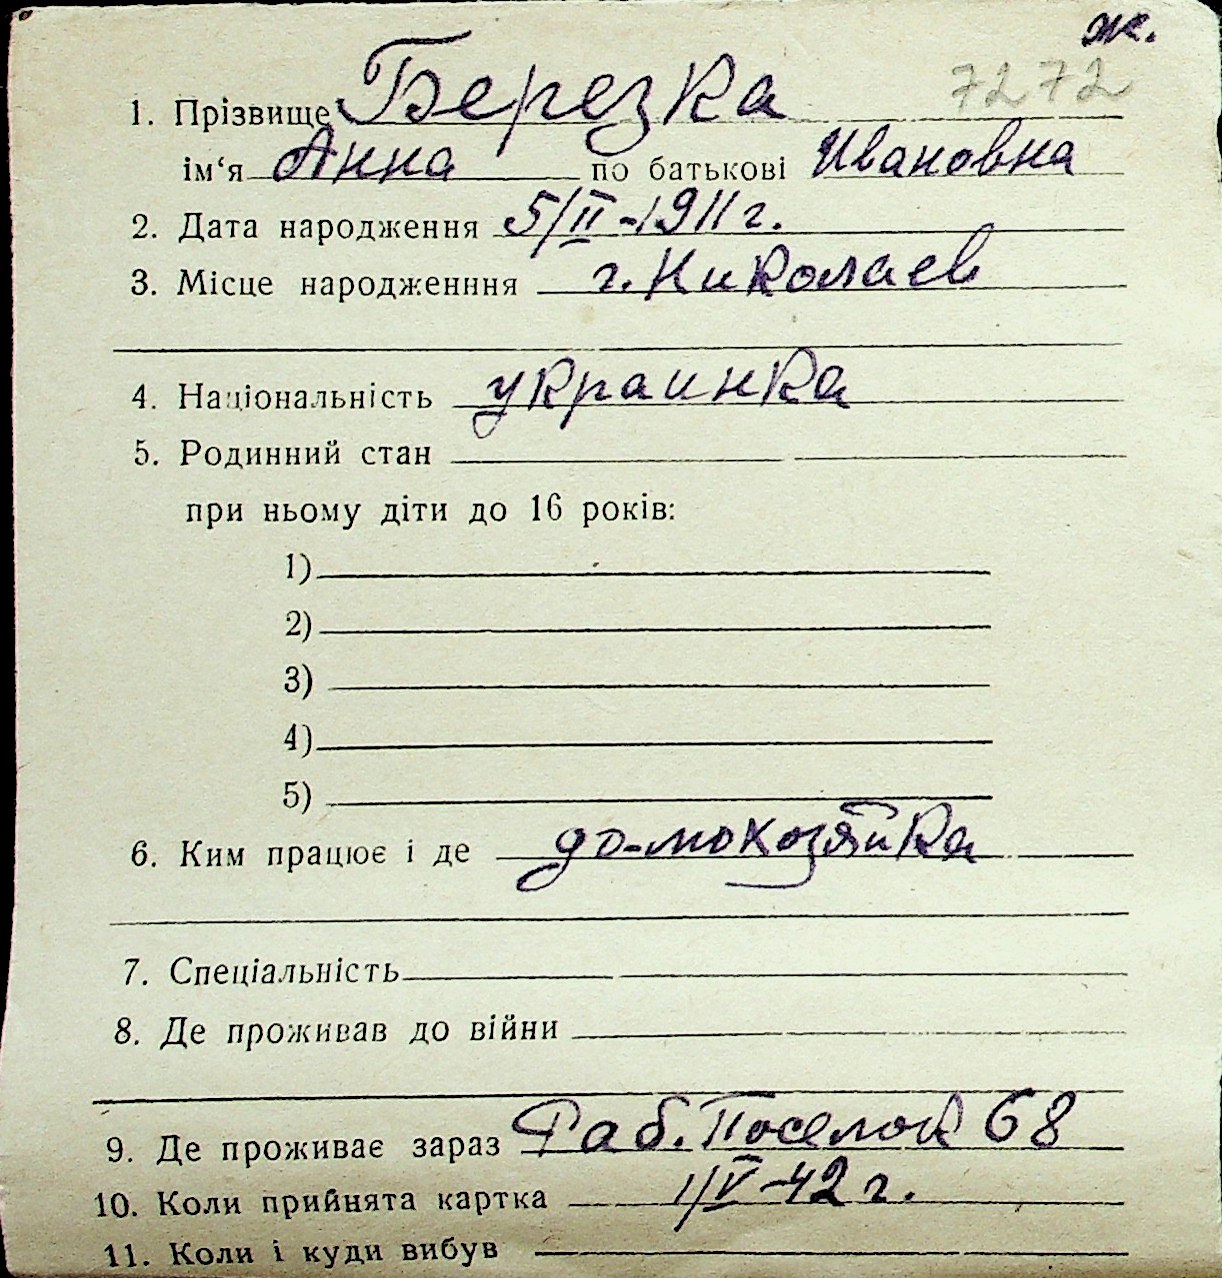 ж.
7272
1. Прізвище Березка
ім‘я Анна по батькові Ивановна
2. Дата народження 5/II-1911 г.
3. Місце народженння г. Николаев
4. Національність украинка
5. Родинний стан
при ньому діти до 16 років:
1)
2)
3)
4)
5)
6. Ким працює і де до-мохозяйка
7. Спеціальність
8. Де проживав до війни
9. Де проживає зараз Раб. Поселок 68
10. Коли прийнята картка 1/V-42 г.
11. Коли і куди вибув